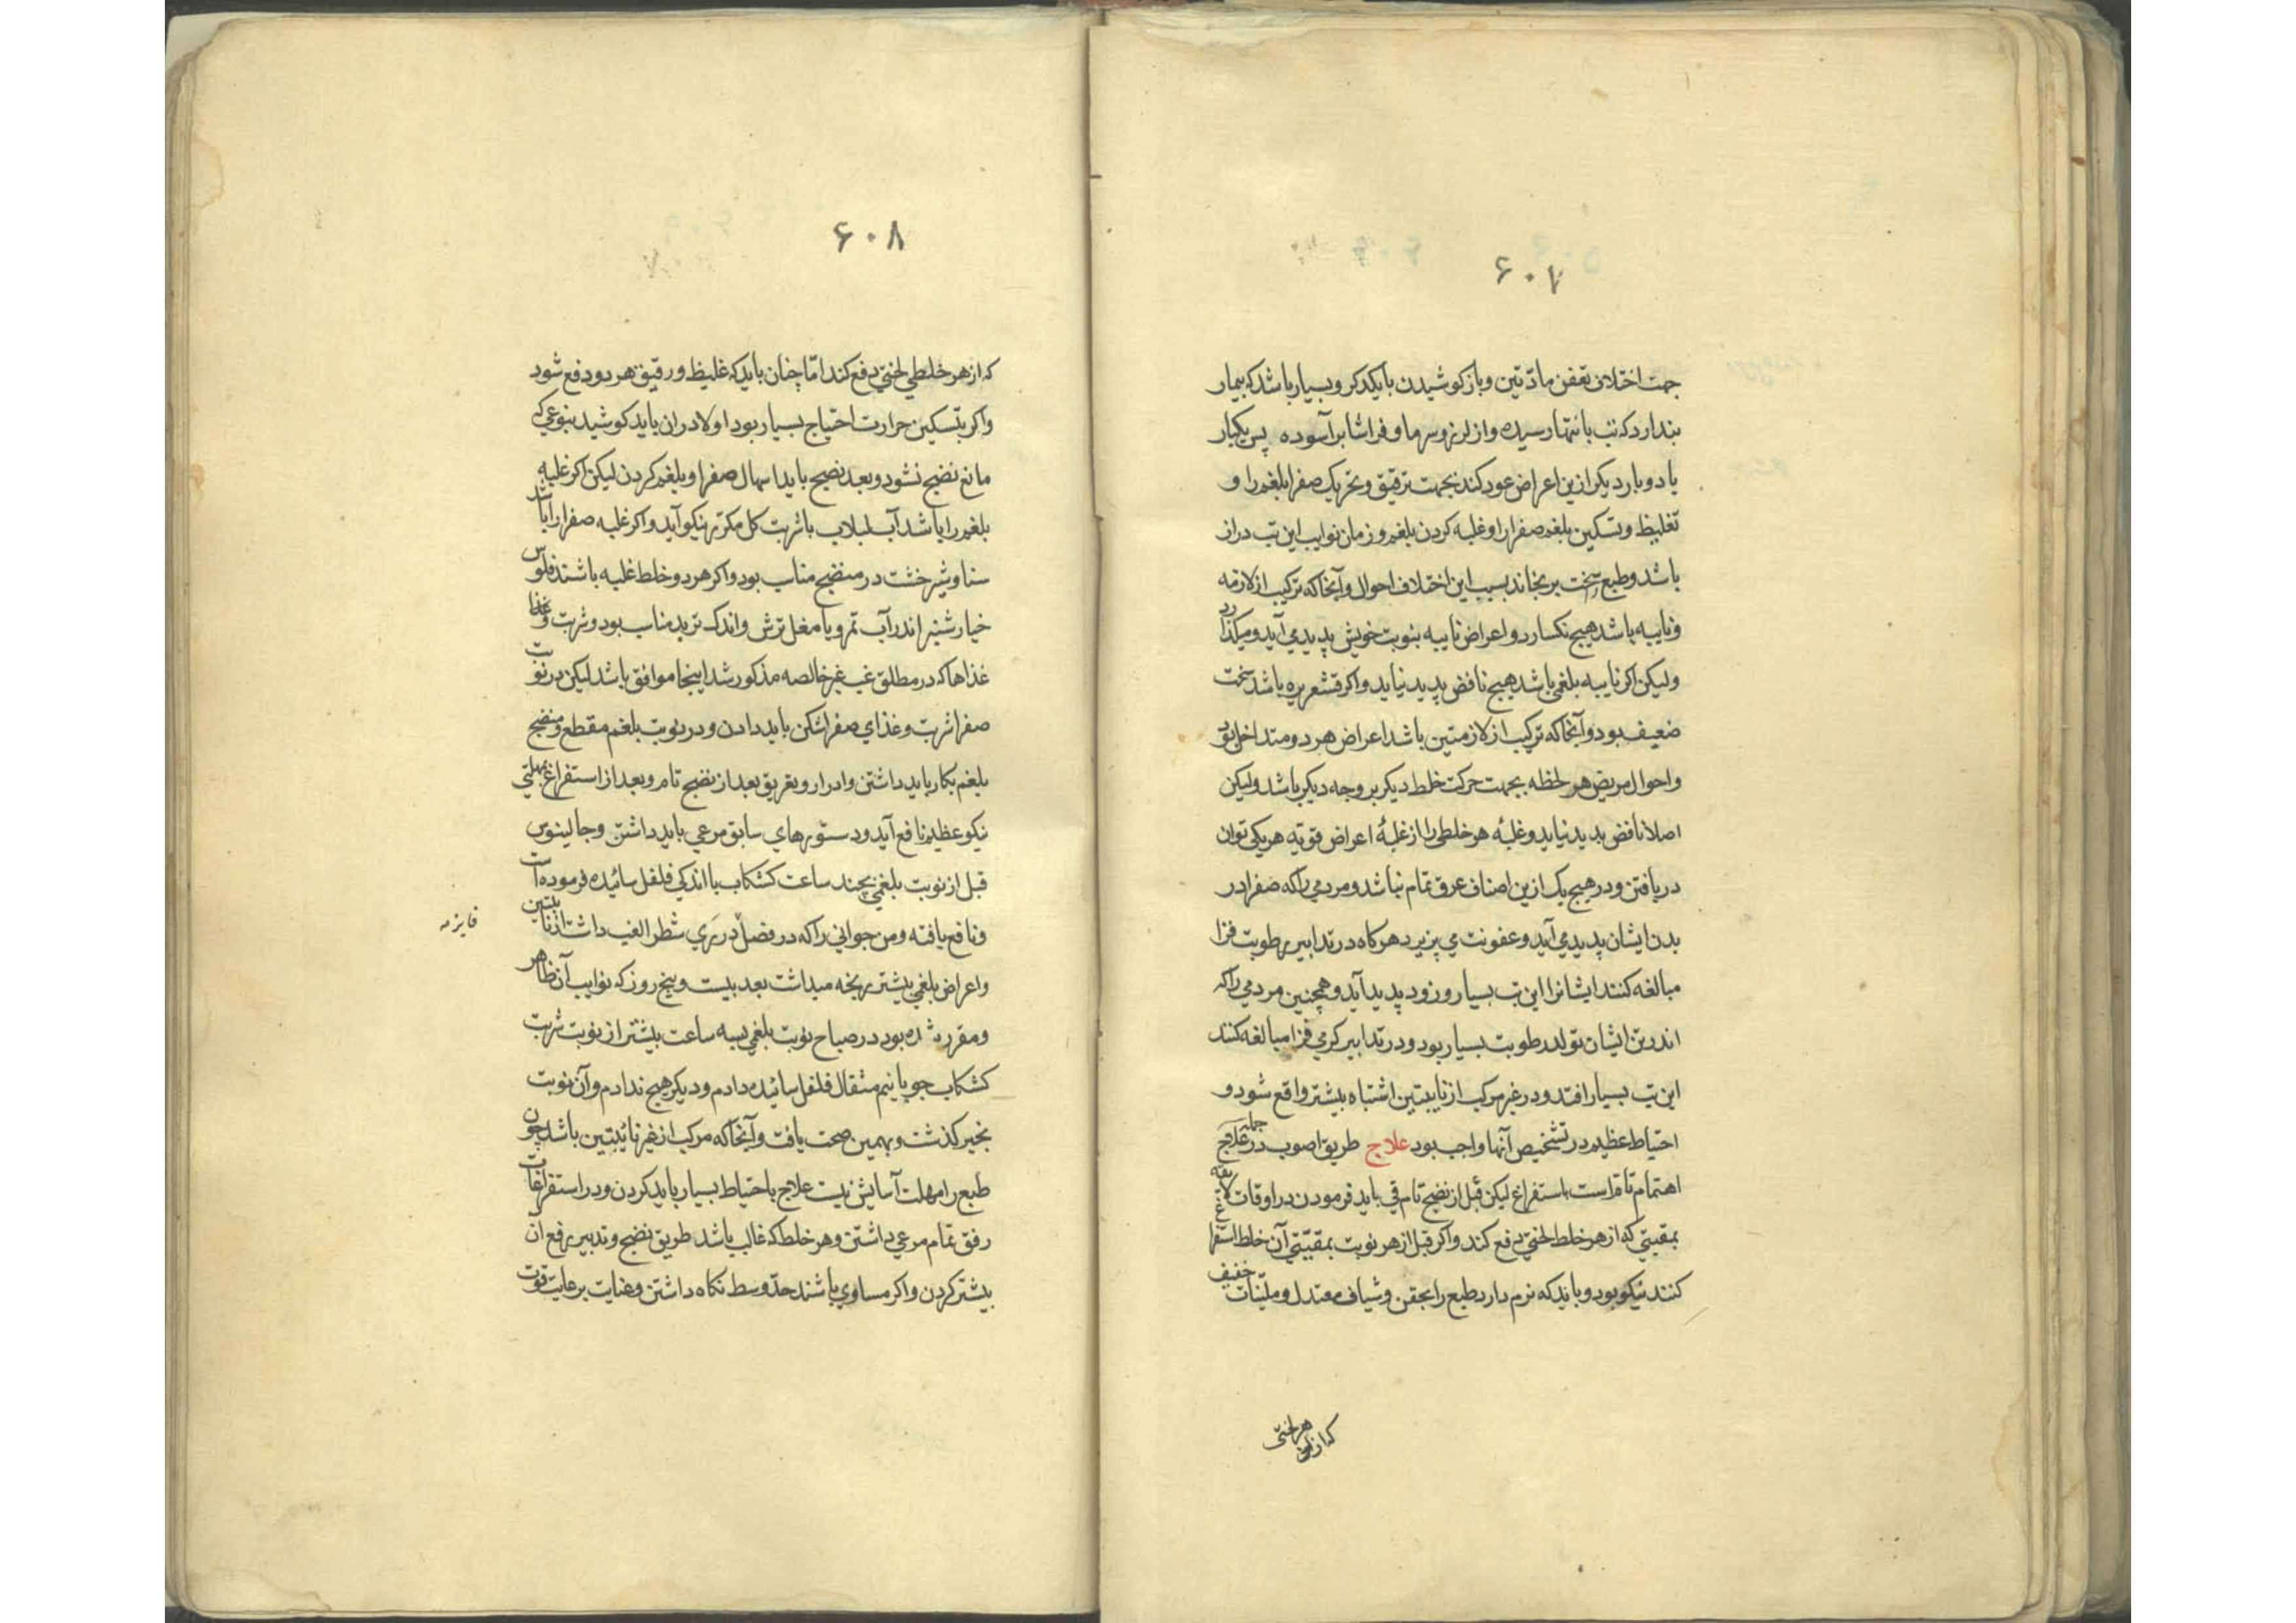 ۶۰۷
جهت اختلاف تعفن مادّتین و باز کوشیدن با یکدیگر و بسیار باشد که بیمار
پندارد که تب بانتها رسیده و از لرز و سرما و فراشا برآسوده پس یکبار
یا دو بار دیگر ازین اعراض عود کند بجهت ترقیق و تحریک صفرا بلغم را و
تغلیظ و تسکین بلغم صفرا را و غلبه کردن بلغم و زمان نوایب این تب دراز
باشد و طبع سخت برنجاند بسبب این اختلاف احوال و آنجا که ترکیب از لازمه
و نایبه باشد هیچ نکسارد و اعراض نایبه بنوبت خویش پدید می آید و میکذرد
ولیکن اکر نایبه بلغمی باشد هیچ نافض پدید نیاید و اکر قشعریره باشد سخت
ضعیف بود و آنجا که ترکیب از لازمتین باشد اعراض هر دو متداخل بود
و احوال مریض هر لحظه بجهت حرکت خلط دیکر بر وجه دیکر باشد ولیکن
اصلا نافض پدید نیاید و غلبهٔ هر خلطی را از غلبهٔ اعراض قویّه هر یکی توان
دریافتن و در هیچ یک ازین اصناف عرق تمام نباشد و مردمی را که صفرا در
بدن ایشان پدید می آید و عفونت می پزیرد هرکاه در تدابیر رطوبت فزا
مبالغه کنند ایشانرا این تب بسیار و زود پدید آید و همچنین مردمی را که
اندر تن ایشان تولد رطوبت بسیار بود و در تدابیر کرمی فزا مبالغه کنند
این تب بسیار افتد و در غیر مرکب از نایبتین اشتباه بیشتر واقع شود و
احتیاط عظیم در تشخیص آنها واجب بود علاج طریق اصوب در جمله علاج
اهتمام تام است باستفراغ لیکن قبل از نضج تام قی باید فرمودن در اوقات لایقه
بمقیّتی که از هر خلط لختی دفع کند و اکر قبل از هر نوبت بمقیّتی آن خلط استفراغ
کنند نیکو بود و باید که نرم دارد طبع را بحقن و شیاف معتدل و ملیّنات خفیف
که از هر لختی
۶۰۸
که از هر خلطی لختی دفع کند امّا چنان باید که غلیظ و رقیق هر دو دفع شود
و اکر بتسکین حرارت احتیاج بسیار بود اولا در ان باید کوشید بنوعی که
مانع نضج نشود و بعد نضیج باید اسهال صفرا و بلغم کردن لیکن اکر غلبه
بلغم را باشد آب لبلاب با شربت کل مکرّر نیکو آید و اکر غلبه صفرا را باشد
سنا و شیرخشت در منضج مناسب بود و اکر هر دو خلط غلبه باشند فلوس
خیارشنبر اندر آب تمر و یا مغل ترش و اندک تربد مناسب بود و شربت و غذا
غذاها که در مطلق غب غیر خالصه مذکور شد اینجا موافق باشد لیکن در نوبت
صفرا شربت و غذای صفرا شکن باید دادن و در نوبت بلغم مقطع و منضج
بلغم بکار باید داشتن و ادرار و تعریق بعد از نضج تام و بعد از استفراغ بمهلتی
نیکو عظیم نافع آید و دستورهای سابق مرعی باید داشتن و جالینوس
قبل از نوبت بلغمی بچند ساعت کشکاب با اندکی فلفل سائیده فرموده است
و نافع یافته و من جوانی را که در فصل در ری شطر الغب داشت از نایبتین
و اعراض بلغمی بیشتر رنجه میداشت بعد بیست و پنج روز که نوایب آن ظاهر
و مقرر شده بود در صباح نوبت بلغمی بسه ساعت بیشتر از نوبت شربت
کشکاب جو با نیم مثقال فلفل سائیده دادم و دیکر هیچ ندادم و آن نوبت
بخیر کذشت و بهمین صحت یافت و آنجا که مرکب از غیر نائبتین باشد چون
طبع را مهلت آسایش نیست علاج باحتیاط بسیار باید کردن و در استفراغات
رفق تمام مرعی داشتن و هر خلط که غالب باشد طریق نضج و تدبیر رفع آن
بیشتر کردن و اکر مساوی باشند حدّ وسط نکاه داشتن و عنایت برعایت قوت